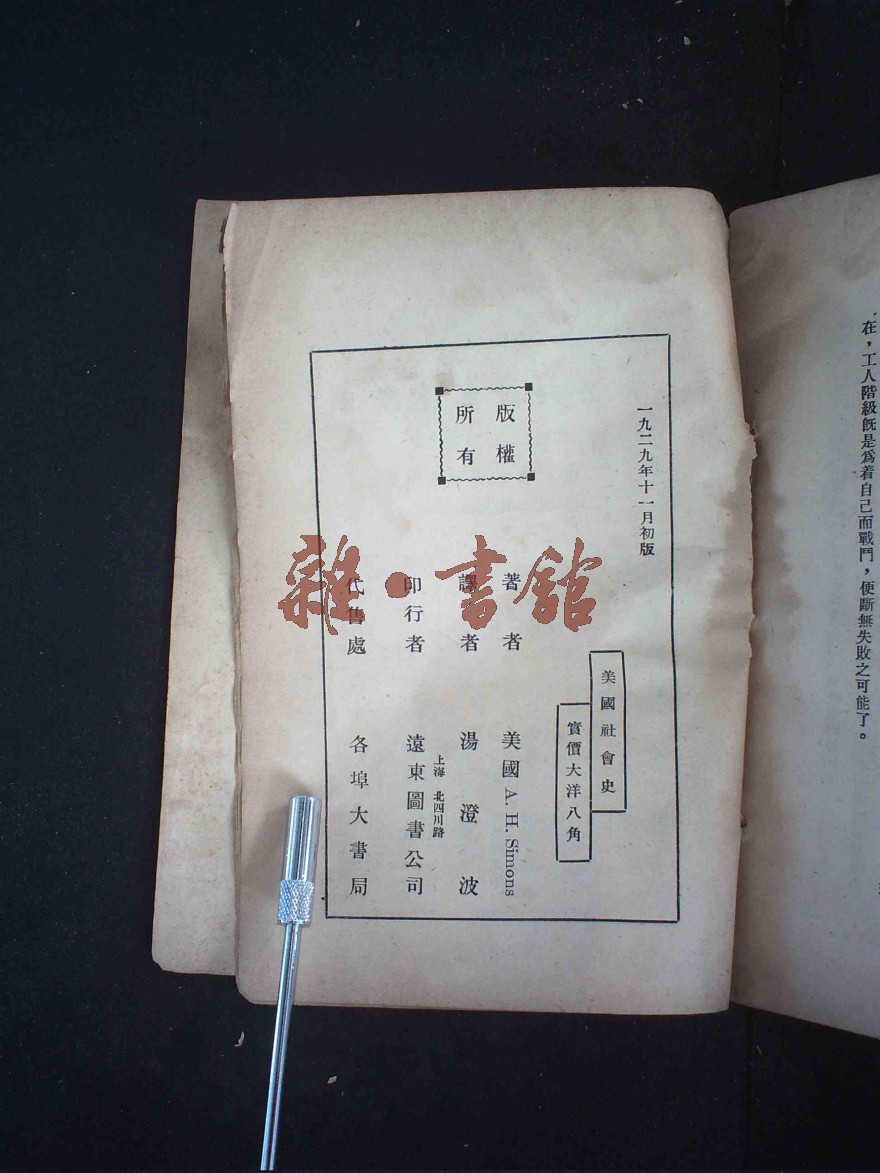 在，工人階級既是爲着自己而戰鬥，便斷無失敗之可能了。
一九二九年十一月初版
美國社會史
實價大洋八角
版權
所有
著者 美國 A. H. Simons
譯者 湯澄波
上海 北四川路
印行者 遠東圖書公司
代售處 各埠大書局
雜·書館